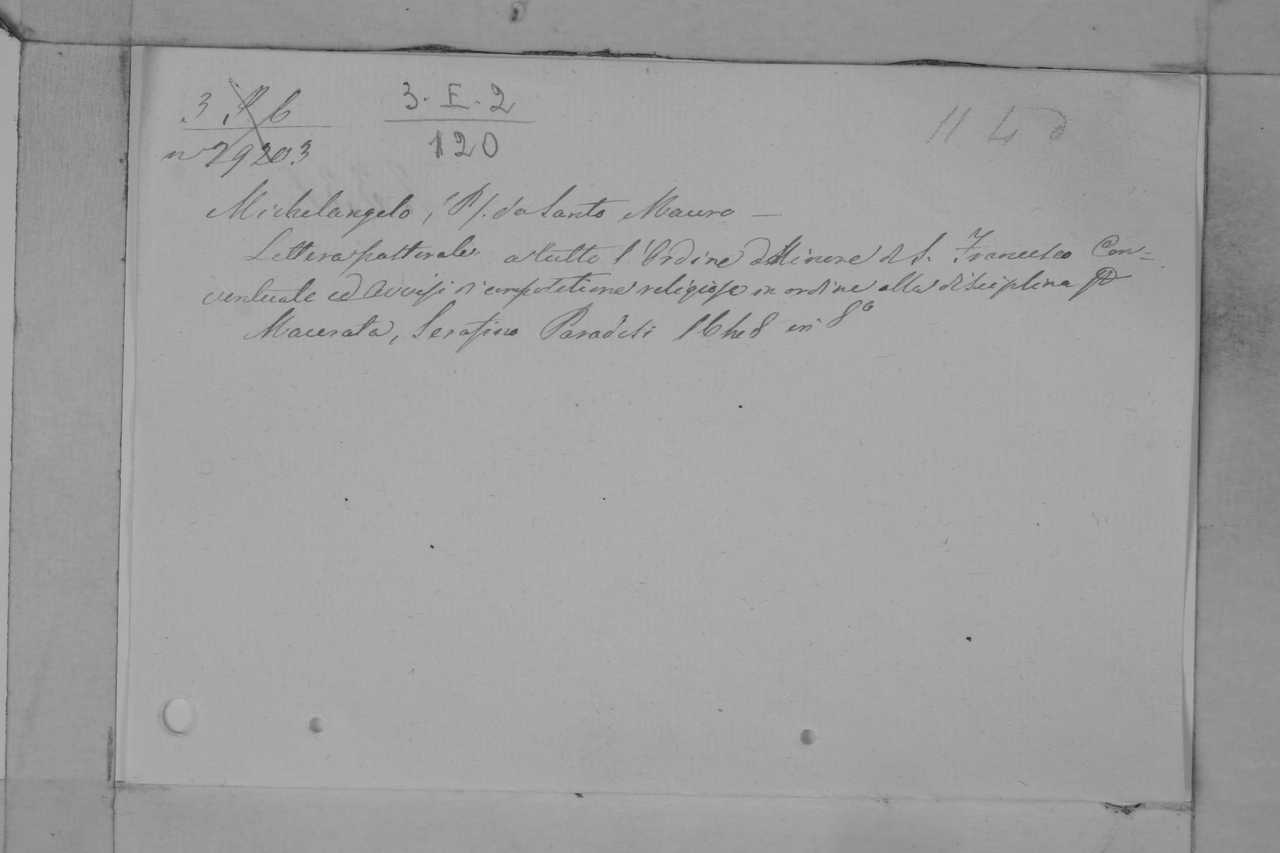 3 . . 6
3. E. 2
nº 29203
120
Michelangelo, P/. da Santo Mauro —
Lettera pastorale a tutto l'Ordine d Minore di S. Francesco Con-
ventuale ed Avvisi religiose in ordine alla disciplina
Macerata, Serafino Paradisi in 8º